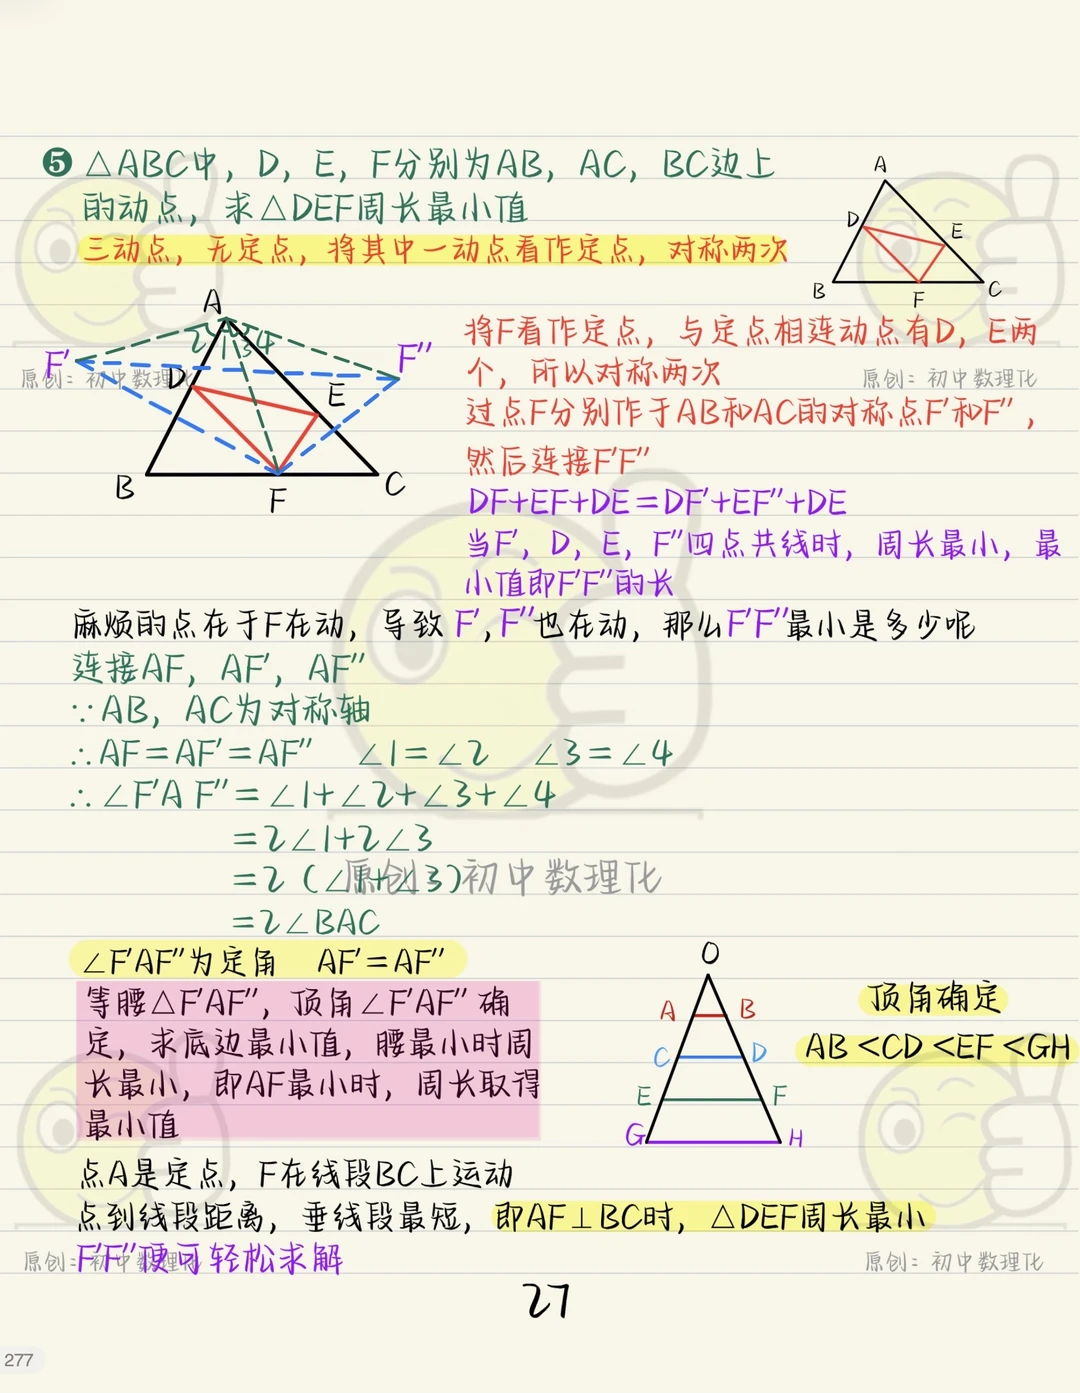 ❺ △ABC中，D，E，F分别为AB，AC，BC边上
的动点，求△DEF周长最小值
三动点，无定点，将其中一动点看作定点，对称两次
A
D
E
B
F
C
A
2 1 3 4
F′
F″
D
E
B
F
C
原创：初中数理化
原创：初中数理化
将F看作定点，与定点相连动点有D，E两
个，所以对称两次
过点F分别作于AB和AC的对称点F′和F″，
然后连接F′F″
DF+EF+DE=DF′+EF″+DE
当F′，D，E，F″四点共线时，周长最小，最
小值即F′F″的长
麻烦的点在于F在动，导致F′,F″也在动，那么F′F″最小是多少呢
连接AF，AF′，AF″
∵AB，AC为对称轴
∴AF=AF′=AF″ ∠1=∠2 ∠3=∠4
∴∠F′AF″=∠1+∠2+∠3+∠4
=2∠1+2∠3
=2（∠1+∠3）
原创：初中数理化
=2∠BAC
∠F′AF″为定角 AF′=AF″
等腰△F′AF″，顶角∠F′AF″确
定，求底边最小值，腰最小时周
长最小，即AF最小时，周长取得
最小值
O
A B
C D
E F
G H
顶角确定
AB<CD<EF<GH
点A是定点，F在线段BC上运动
点到线段距离，垂线段最短，即AF⊥BC时，△DEF周长最小
F′F″便可轻松求解
原创：初中数理化
原创：初中数理化
27
277